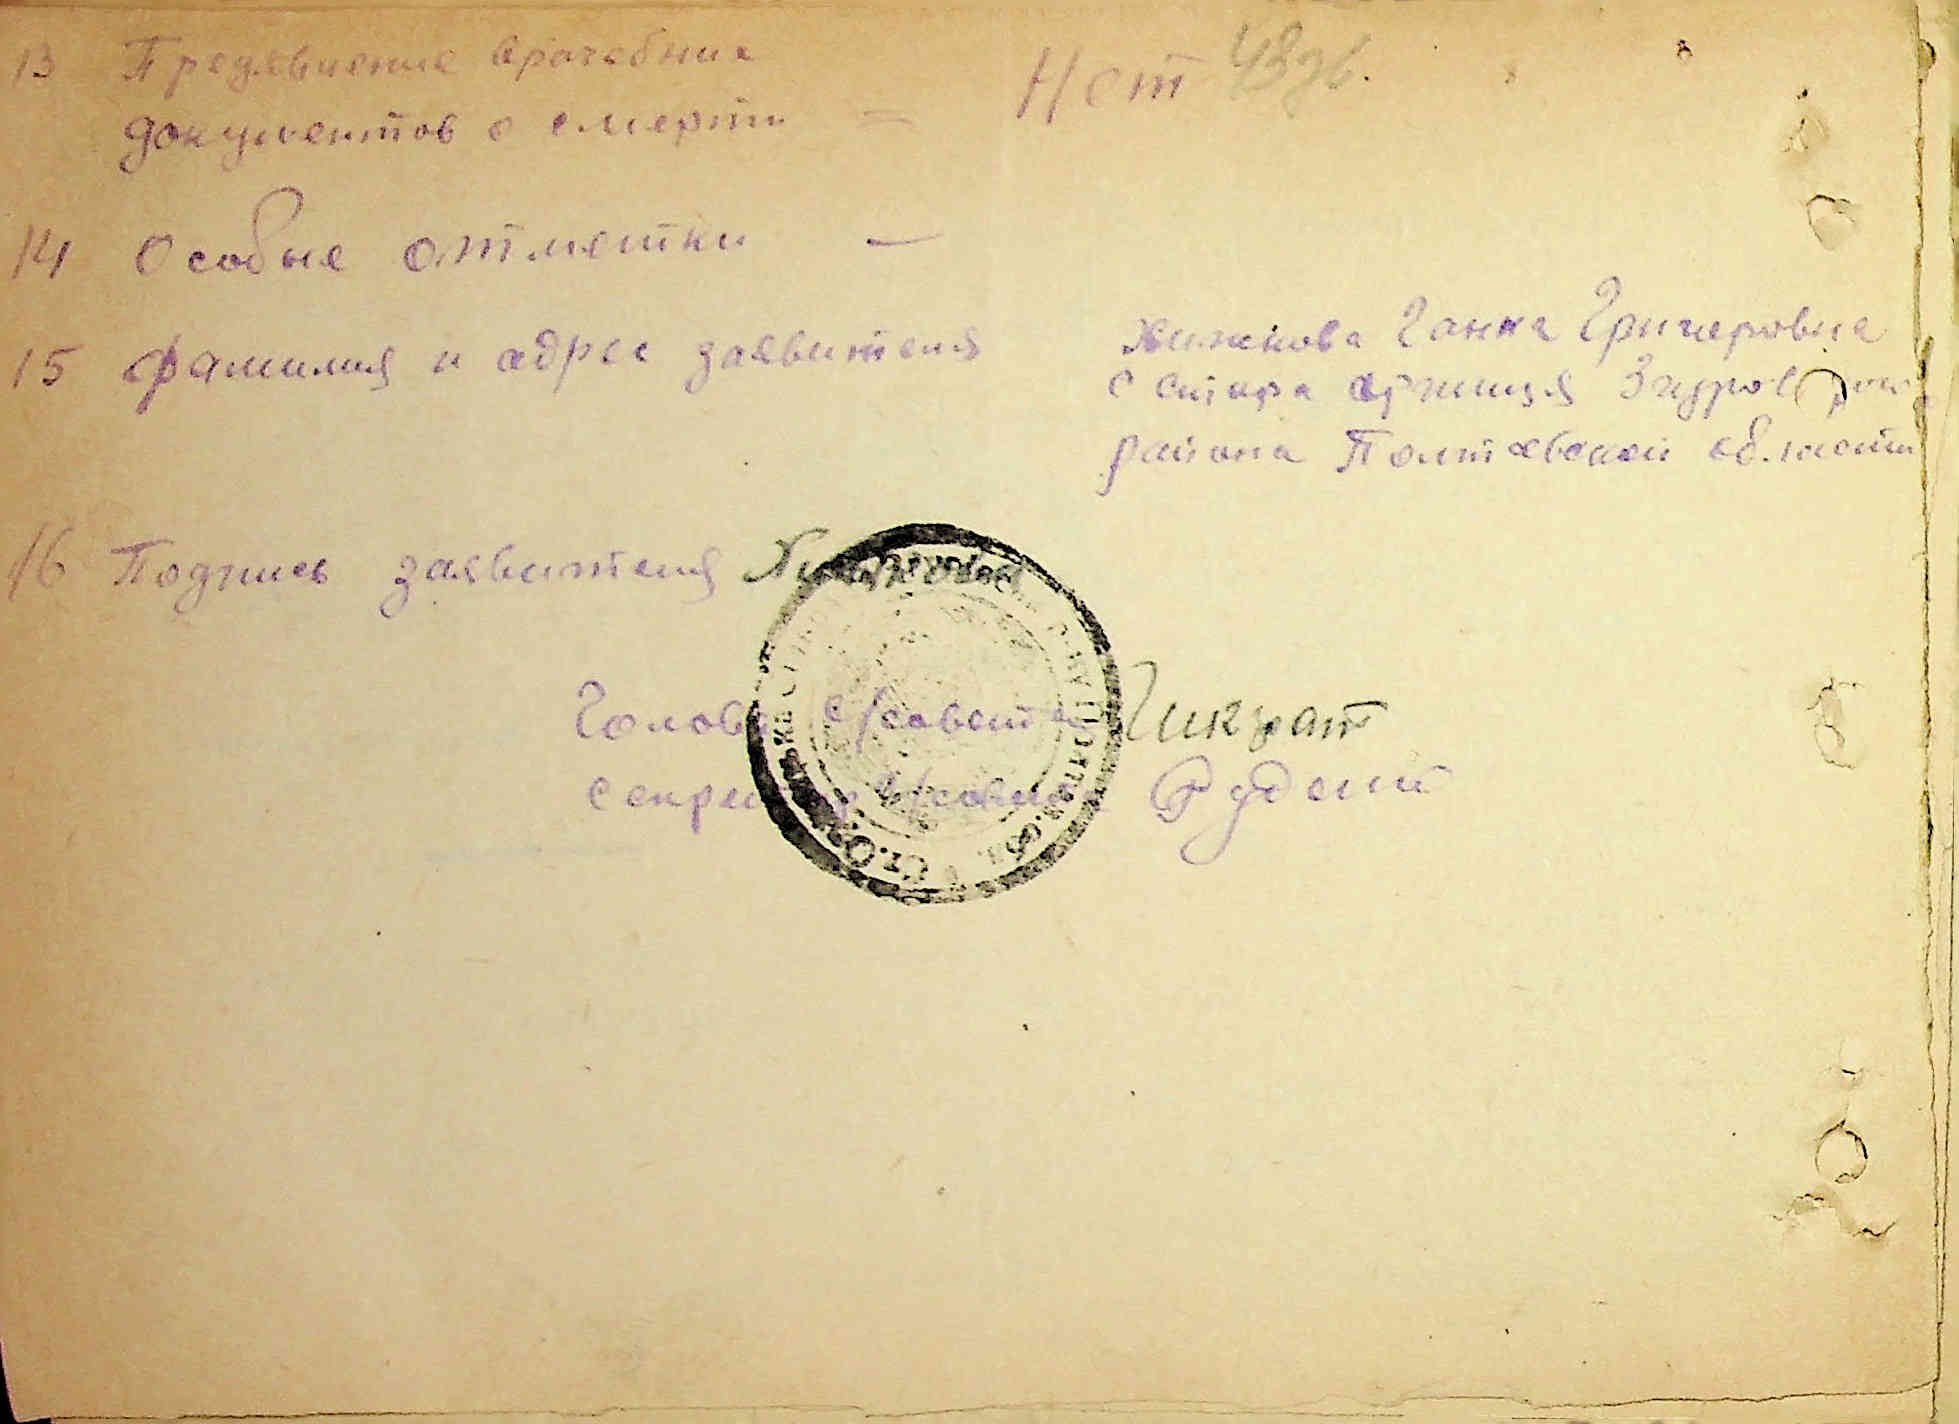 13 Предявление врачебних Нет
документов о смерти —
14 Особые отметки —
15 фамилия и адрес заявителя Хижнкова Ганна Григоровна
с Стара оржиця Згуровского
района Полтавской области
16 Подпись заявителя
Голова с/совета Гикрат
Секретар с/совета